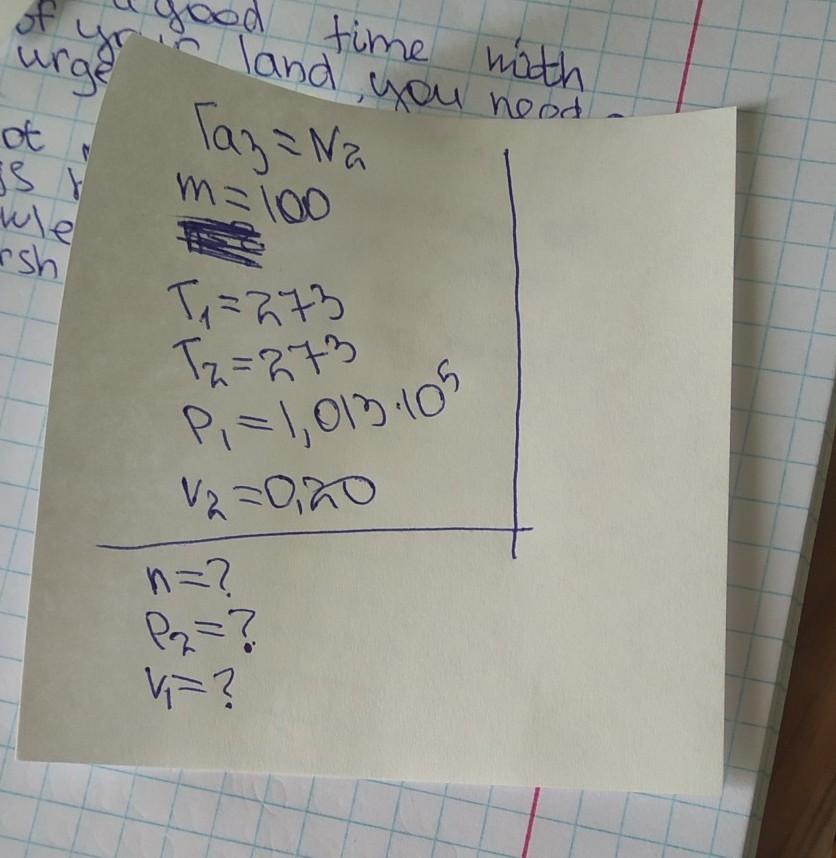 a good
of your time with
urge land, you need
ot
is
wle
rsh
Газ = N2
m = 100
T1 = 273
T2 = 273
P1 = 1,013·10^5
V2 = 0,20
n = ?
P2 = ?
V1 = ?